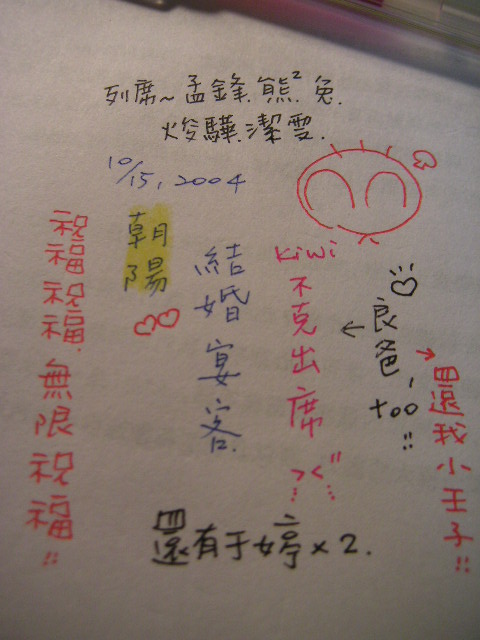 列席~孟鋒.熊²兔.
焌驊.潔雯.
10/15, 2004
朝陽
結婚宴客.
kiwi
不克出席
><"
良爸, too!!
還我小王子!!
祝福祝福.無限祝福!!
還有于婷x2.